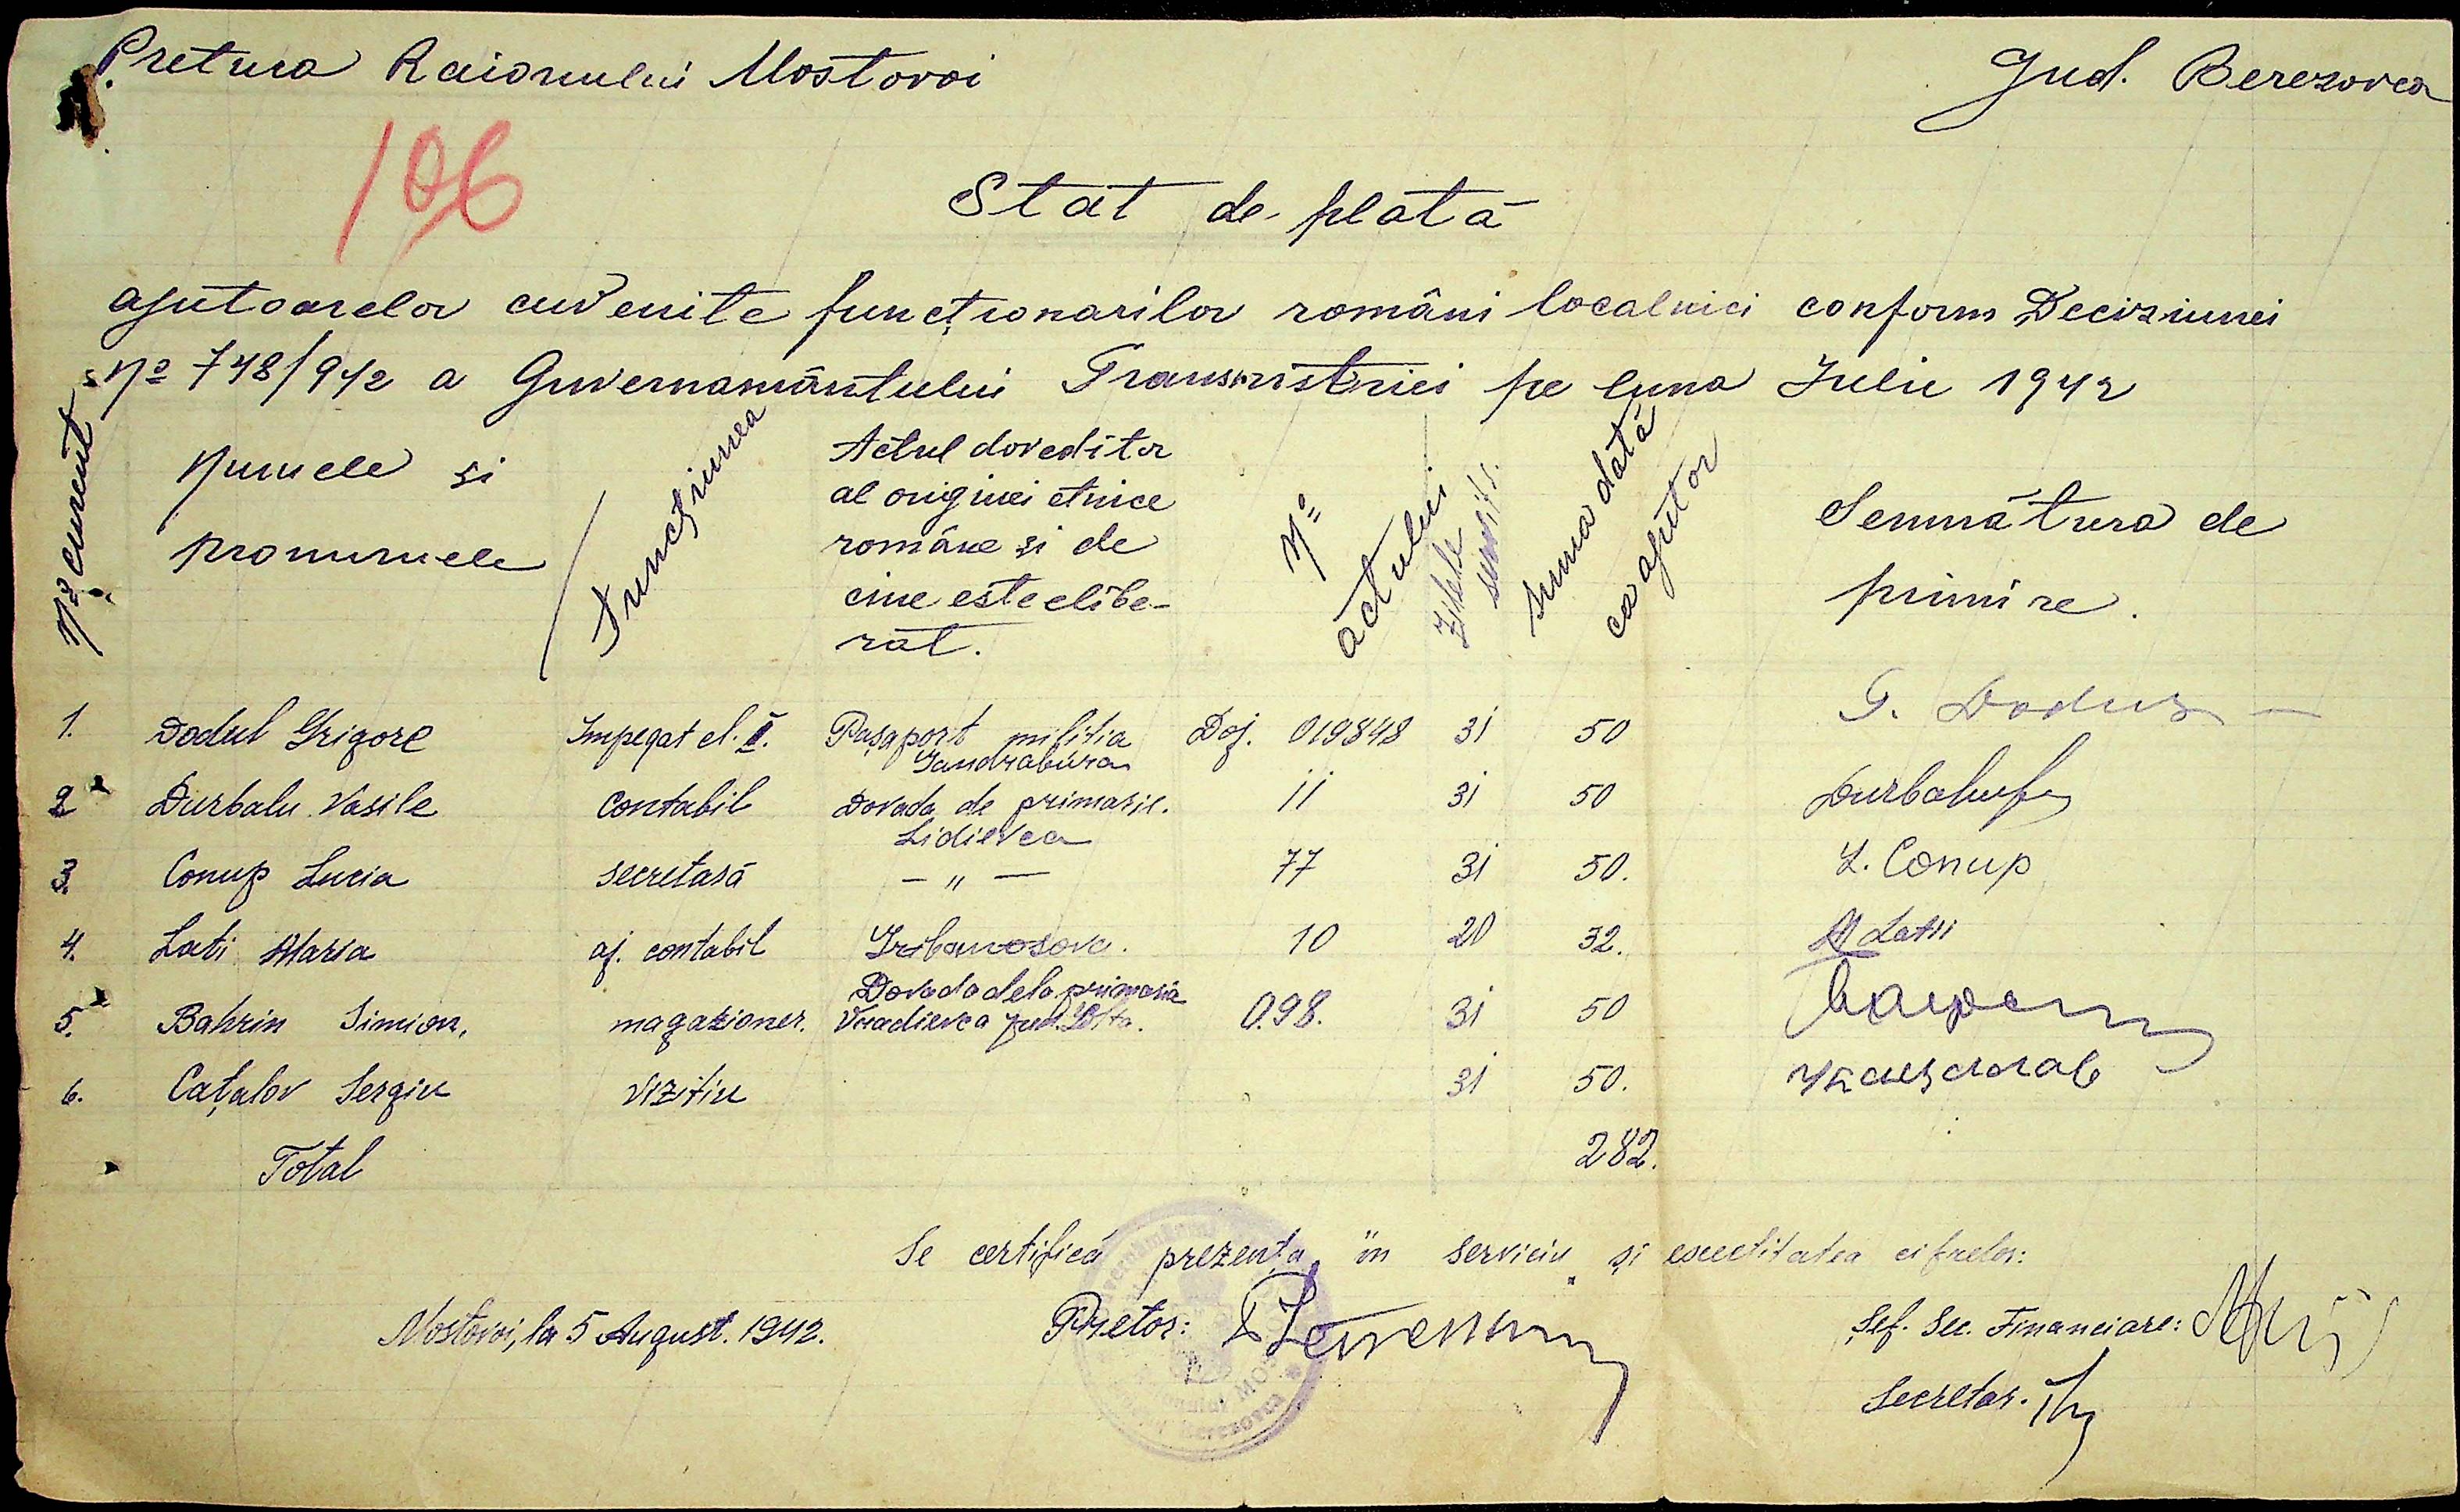 Pretura Raionului Mostovoi Jud. Berezovca
106
Stat de plată
ajutoarelor cuvenite funcționarilor români localnici conform Deciziunei
No 748/942 a Guvernamântului Transnistriei pe luna Iulie 1942
No curent
Numele și
pronumele
Funcțiunea
Actul doveditor
al originei etnice
române și de
cine este elibe-
rat.
No
actului
Zilele
servite
Suma dată
ca ajutor
Semnătura de
primire.
1. Dodul Grigore Impegat cl. II. Pașaport miliția Doj. 019848 31 50 G. Dodul
Jandrabura
2 Durbalu Vasile Contabil Dovada de primarie. 11 31 50 Durbalu
Lidievca
3. Conup Lucia secretară — " — 77 31 50. L. Conup
4. Lati Maria aj. contabil Gribanosova. 10 20 32. M Latii
Dovada dela primaria
5. Bahrin Simion, magazioner. Vradievca jud. Golta. 098. 31 50
6. Cațalov Sergiu vizitiu 31 50.
Total 282.
Se certifică prezența în serviciu și exactitatea cifrelor:
Mostovoi, la 5 August. 1942. Pretor: Șef. Sec. Financiare:
Secretar.